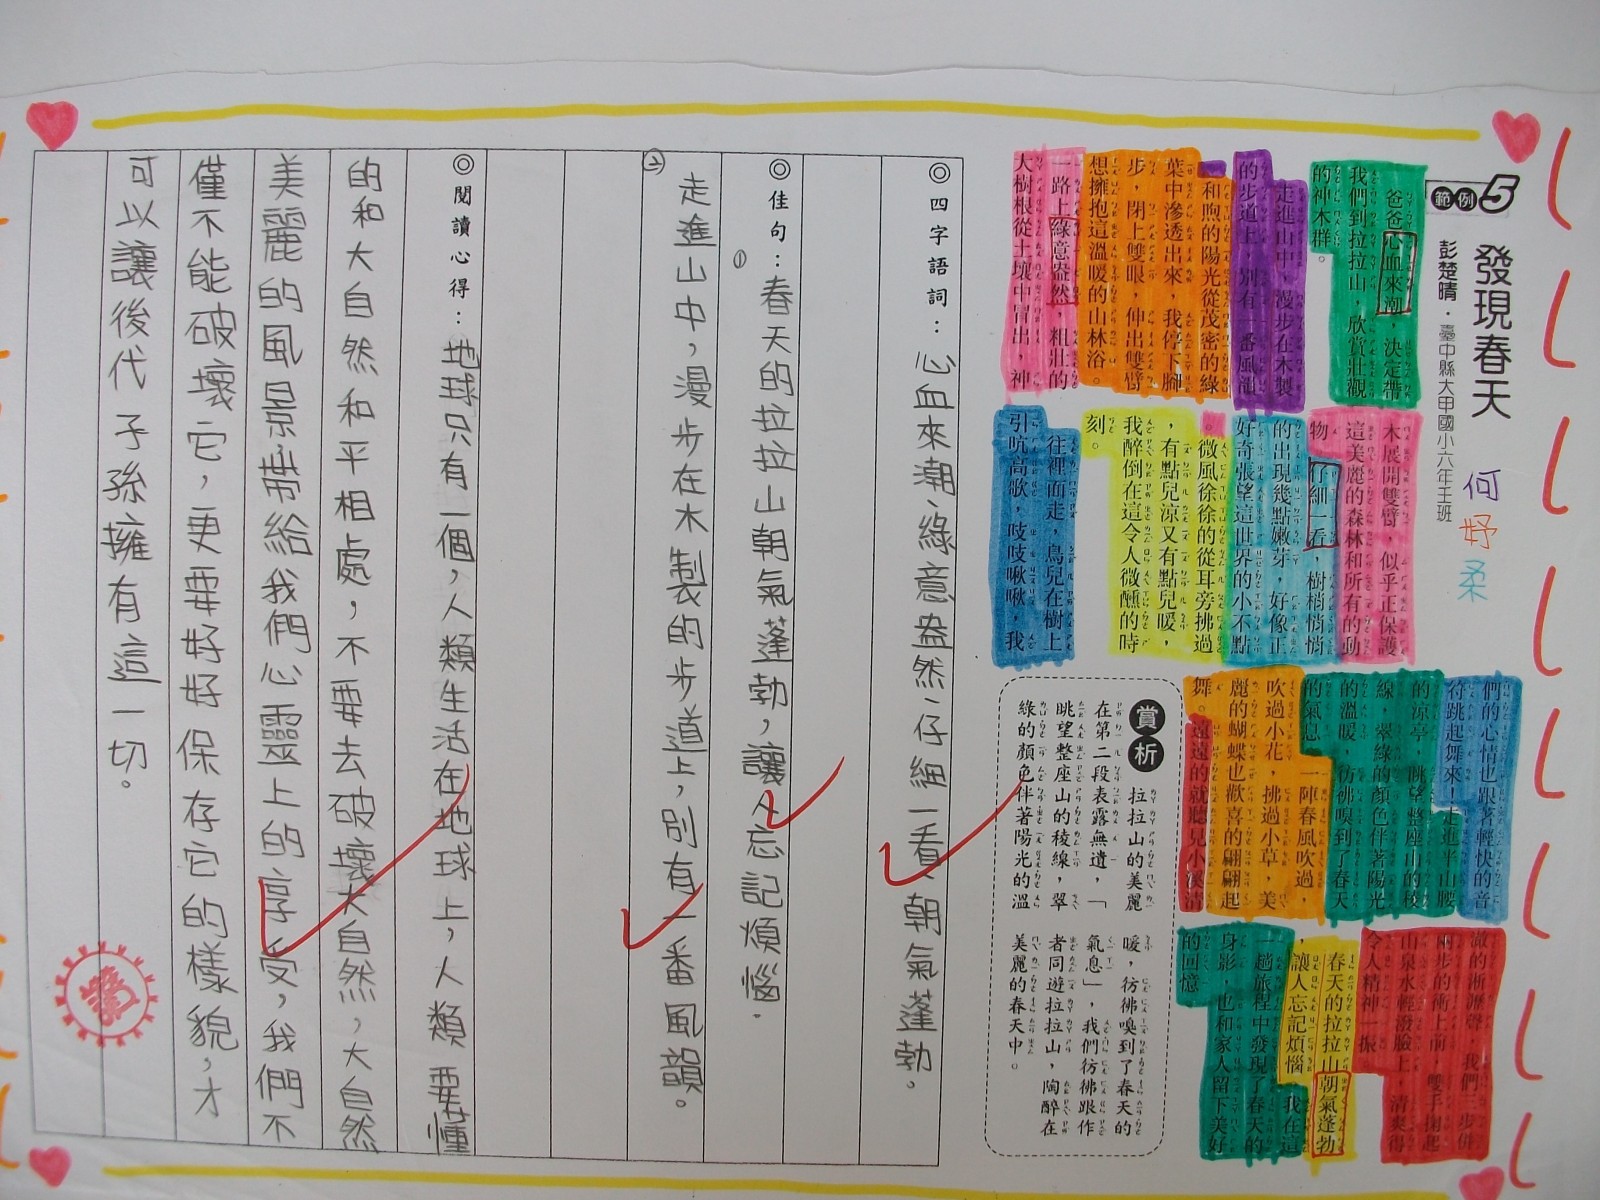 範例5
發現春天
何妤柔
彭楚晴．臺中縣大甲國小六年壬班
爸爸心血來潮，決定帶
我們到拉拉山，欣賞壯觀
的神木群。
走進山中，漫步在木製
的步道上，別有一番風韻
，和煦的陽光從茂密的綠
葉中滲透出來，我停下腳
步，閉上雙眼，伸出雙臂
想擁抱這溫暖的山林浴。
一路上綠意盎然，粗壯的
大樹根從土壤中冒出，神
木展開雙臂，似乎正保護
這美麗的森林和所有的動
物。仔細一看，樹梢悄悄
的出現幾點嫩芽，好像正
好奇張望這世界的小不點
。微風徐徐的從耳旁拂過
，有點兒涼又有點兒暖，
我醉倒在這令人微醺的時
刻。
往裡面走，鳥兒在樹上
引吭高歌，吱吱啾啾，我
們的心情也跟著輕快的音
符跳起舞來！走進半山腰
的涼亭，眺望整座山的稜
線，翠綠的顏色伴著陽光
的溫暖，彷彿嗅到了春天
的氣息。一陣春風吹過，
吹過小花，拂過小草，美
麗的蝴蝶也歡喜的翩翩起
舞。遠遠的就聽見小溪清
澈的淅瀝聲，我們三步併
兩步的衝上前，雙手掬起
山泉水輕潑臉上，清爽得
令人精神一振
春天的拉拉山朝氣蓬勃
，讓人忘記煩惱，我在這
一趟旅程中發現了春天的
身影，也和家人留下美好
的回憶
賞析
拉拉山的美麗
在第二段表露無遺，「
眺望整座山的稜線，翠
綠的顏色伴著陽光的溫
暖，彷彿嗅到了春天的
氣息」，我們彷彿跟作
者同遊拉拉山，陶醉在
美麗的春天中。
◎四字語詞：心血來潮、綠意盎然、仔細一看、朝氣蓬勃。
◎佳句：①春天的拉拉山朝氣蓬勃，讓人忘記煩惱。
②走進山中，漫步在木製的步道上，別有一番風韻。
◎閱讀心得：地球只有一個，人類生活在地球上，人類要懂
的和大自然和平相處，不要去破壞大自然，大自然
美麗的風景帶給我們心靈上的享受，我們不
僅不能破壞它，更要好好保存它的樣貌，才
可以讓後代子孫擁有這一切。
讚